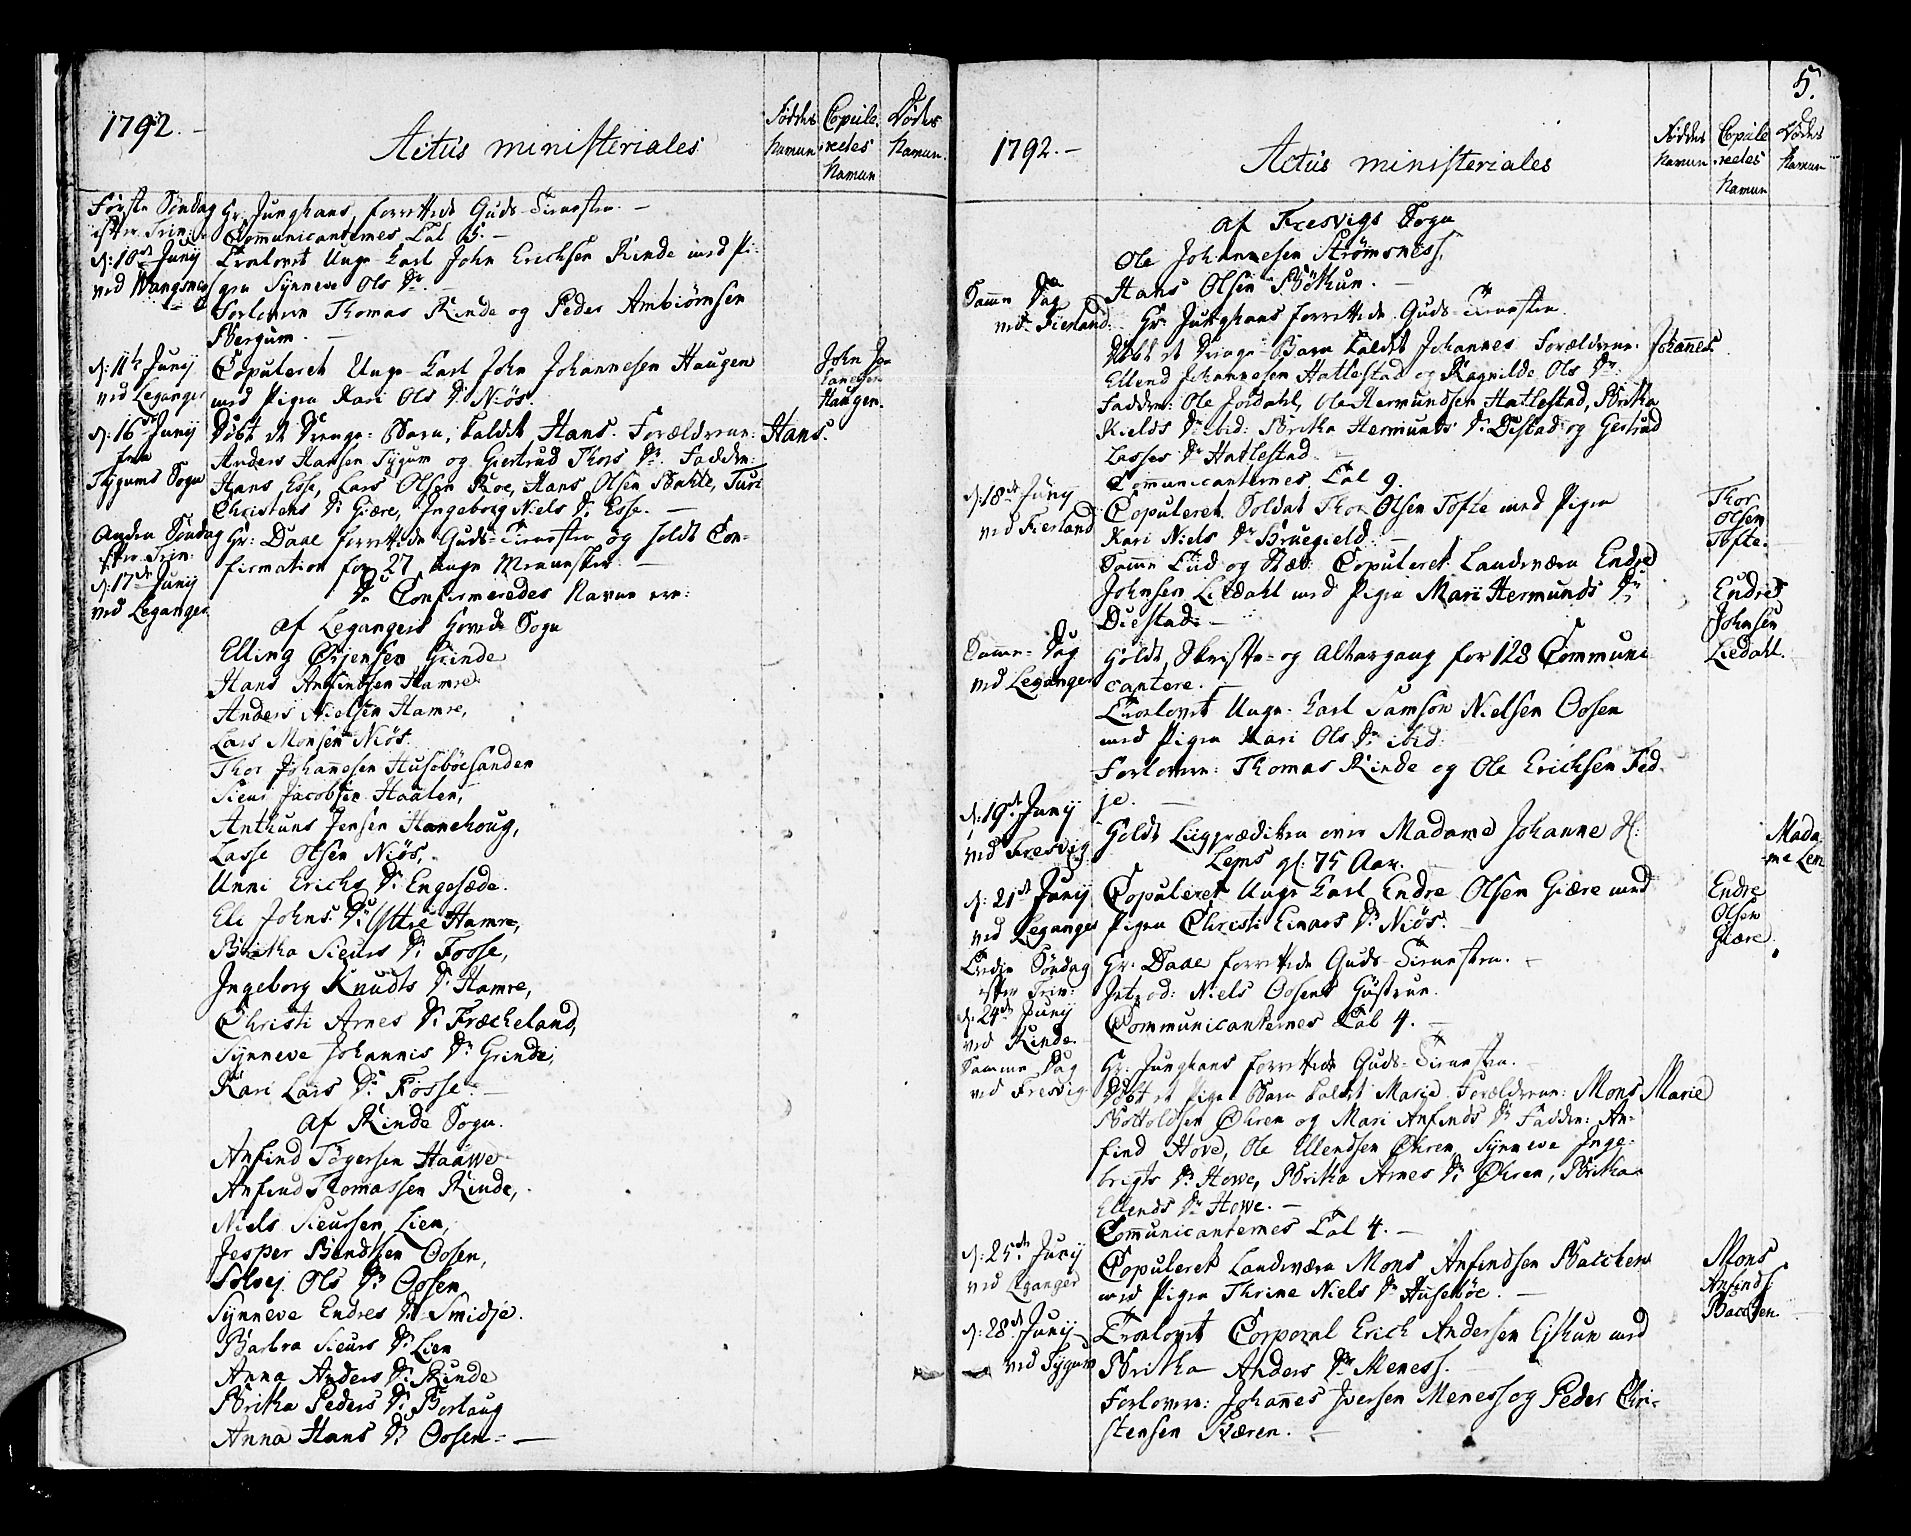 1792.
Actus ministeriales
Fødde Copule- Døde
Navne redes Navne
Navne
Første Søndag
efter Trin:
d: 10de Junij
ved Wangsnes
Hr. Junghans forrettede Guds-Tieneste. –
Communicanternes Tal 5. –
Trolovet Unge Karl John Erichsen Rinde med Pi-
gen Synneve Ols Dr. –
Forlovere Thomas Rinde og Peder Ambiørnsen
Bergum. –
d: 11te Junij
ved Leganger
Copuleret Unge Karl John Johannesen Haugen
med Pigen Kari Ols Dr Niøs.
John Jo-
hanesen
Haugen.
d: 16de Junij
fra
Tygums Sogn
Døbt et Drenge-Barn, kaldet Hans. Forældrene:
Anders Hansen Tygum og Giertrud Thors Dr. Faddere:
Hans Esse, Lars Olsen Roe, Hans Olsen Bahle, Turi
Christens Dr Giære, Ingeborg Niels Dr Esse. –
Hans.
Anden Søndag
efter Trin:
d: 17de Junij
ved Leganger
Hr: Daae forrettede Guds-Tieneste og holdt Con-
firmation for 27 unge Mennesker. –
De Confirmeredes Navne ere:
af Legangers Hoved Sogn
Elling Ørjensen Grinde
Hans Anfindsen Hamre
Anders Nielsen Hamre,
Lars Monsen Niøs.
Thor Johannesen Husebøesanden
Sieur Jacobsen Haaten,
Anthuns Jensen Hanehoug,
Lasse Olsen Niøs,
Unni Erichs Dr Engesæde.
Eli Johns Dr Yttre Hamre,
Britha Sieurs Dr Fosse,
Ingeborg Knudts Dr Hamre,
Christi Arnes Dr Fræcheland,
Synneve Johannis Dr Grinde,
Kari Lars Dr Fosse. –
Af Rinde Sogn.
Anfind Tøgersen Haawe
Anfind Thomassen Rinde,
Niels Sieursen Lien,
Jesper Bendtsen Oosen,
Solvej Ols Dr Oosen
Synneve Endres Dr Smidje.
Barbra Sieurs Dr Lien
Anna Anders Dr Rinde
Britha Peders Dr Borlaug
Anna Hans Dr Oosen. –
5.
1792. –
Actus ministeriales
Fødde Copule- Døde
Navne redes Navne
Navne
Af Fresvigs Sogn
Ole Johannesen Strømsness,
Hans Olsen Bøthun. –
Samme Dag
ved Fierland
Hr. Junghans forrettede Guds-Tieneste.
Døbt et Drenge-Barn kaldet Johannes Forældrene:
Ellend Johannesen Hatlestad og Ragnilde Ols Dr.
Faddere: Ole Jordahl, Ole Hermundsen Hatlestad, Britha
Kields Dr ibid: Britha Hermunds Dr Distad og Giertrud
Lasses Dr Hatlestad. –
Communicanternes Tal 9.
Johannes.
d: 18de Junij
ved Fierland
Copuleret Soldat Thor Olsen Tofte med Pigen
Kari Niels Dr Bruegield. –
Samme Tid og Stæd Copuleret Landværn Endre
Johnsen Liedahl med Pigen Mari Hermunds Dr
Diestad. –
Thor
Olsen
Tofte.
Endre
Johnsen
Liedahl.
Samme Dag
ved Leganger
Holdt Skrifte- og Altergang for 128 Communi-
cantere. –
Trolovet Unge Karl Samson Nielsen Oosen
med Pigen Kari Ols Dr ibid.
Forlovere: Thomas Rinde og Ole Erichsen Fed-
je. –
d: 19de Junij
ved Fresvig
Holdt Liigprædiken over Madame Johanne H:
Lems gl: 75 Aar. –
Mada-
me Lem
d: 21de Junij
ved Leganger
Copuleret Unge Karl Endre Olsen Giære med
Pigen Christi Einars Dr Niøs. –
Endre
Olsen
Giære
Tredje Søndag
efter Trin:
d: 24de Junij
ved Rinde
Hr. Daae forrettede Guds-Tieneste. –
Introd: Niels Oosens Hustrue.
Communicanternes Tal 4. –
Samme Dag
ved Fresvig
Hr. Junghans forrettede Guds-Tieneste. –
Døbt et Pige-Barn kaldet Marie. Forældrene: Mons
Botholdsen Øhren og Mari Anfinds Dr Faddere: An-
find Hove, Ole Ellendsen Øhren, Synneve Inge-
brigts Dr Howe, Britha Arnes Dr Øhren, Britha
Ellends Dr Howe. –
Communicanternes Tal 4. –
Marie
d: 25de Junij
ved Leganger
Copuleret Landværn Mons Anfindsen Balchen
med Pigen Thrine Niels Dr Husebøe. –
Mons
Anfinds:
Balchen.
d: 28de Junij
ved Tygum
Trolovet Corporal Erich Andersen Eskun med
Britha Anders Dr Meness. –
Forlovere: Johannes Iversen Meness og Peder Chri-
stensen Kæren. –